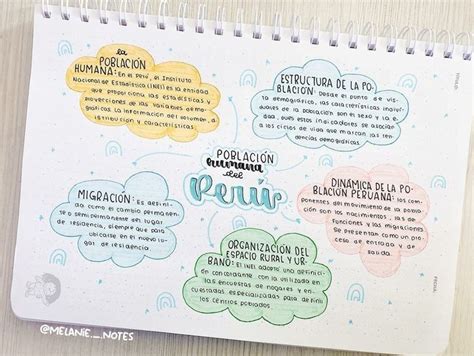 la
POBLACIÓN
HUMANA: En el Perú, el Instituto
Nacional de Estadística (INEI) es la entidad
que proporciona las estadísticas y
proyecciones de las variables demo-
gráficas, la información del volumen, d
istribución y características.
ESTRUCTURA DE LA PO-
BLACIÓN: Desde el punto de vis-
ta demográfico, las características individ
uales de la población son el sexo y la e
dad, pues estos indicadores se asocian
a los ciclos de vida que marcan las ten
dencias demográficas.
POBLACIÓN
humana
del
Perú
MIGRACIÓN: Es defini-
da como el cambio permanen-
te o semi permanente del lugar
de residencia, siempre que para
ubicarse en el nuevo lugar
de residencia.
DINÁMICA DE LA PO-
BLACIÓN PERUANA: Los com
ponentes del movimiento de la pobla-
ción son los nacimientos, las de
funciones y las migraciones
Se presentan como un pro
ceso de entrada y de
salida.
ORGANIZACIÓN DEL
ESPACIO RURAL Y UR-
BANO: El INEI adoptó una definici-
ón concordante con la utilizada en
las encuestas de hogares y en-
cuestadas especializadas para definir
los centros poblados.
@MELANIE._.NOTES